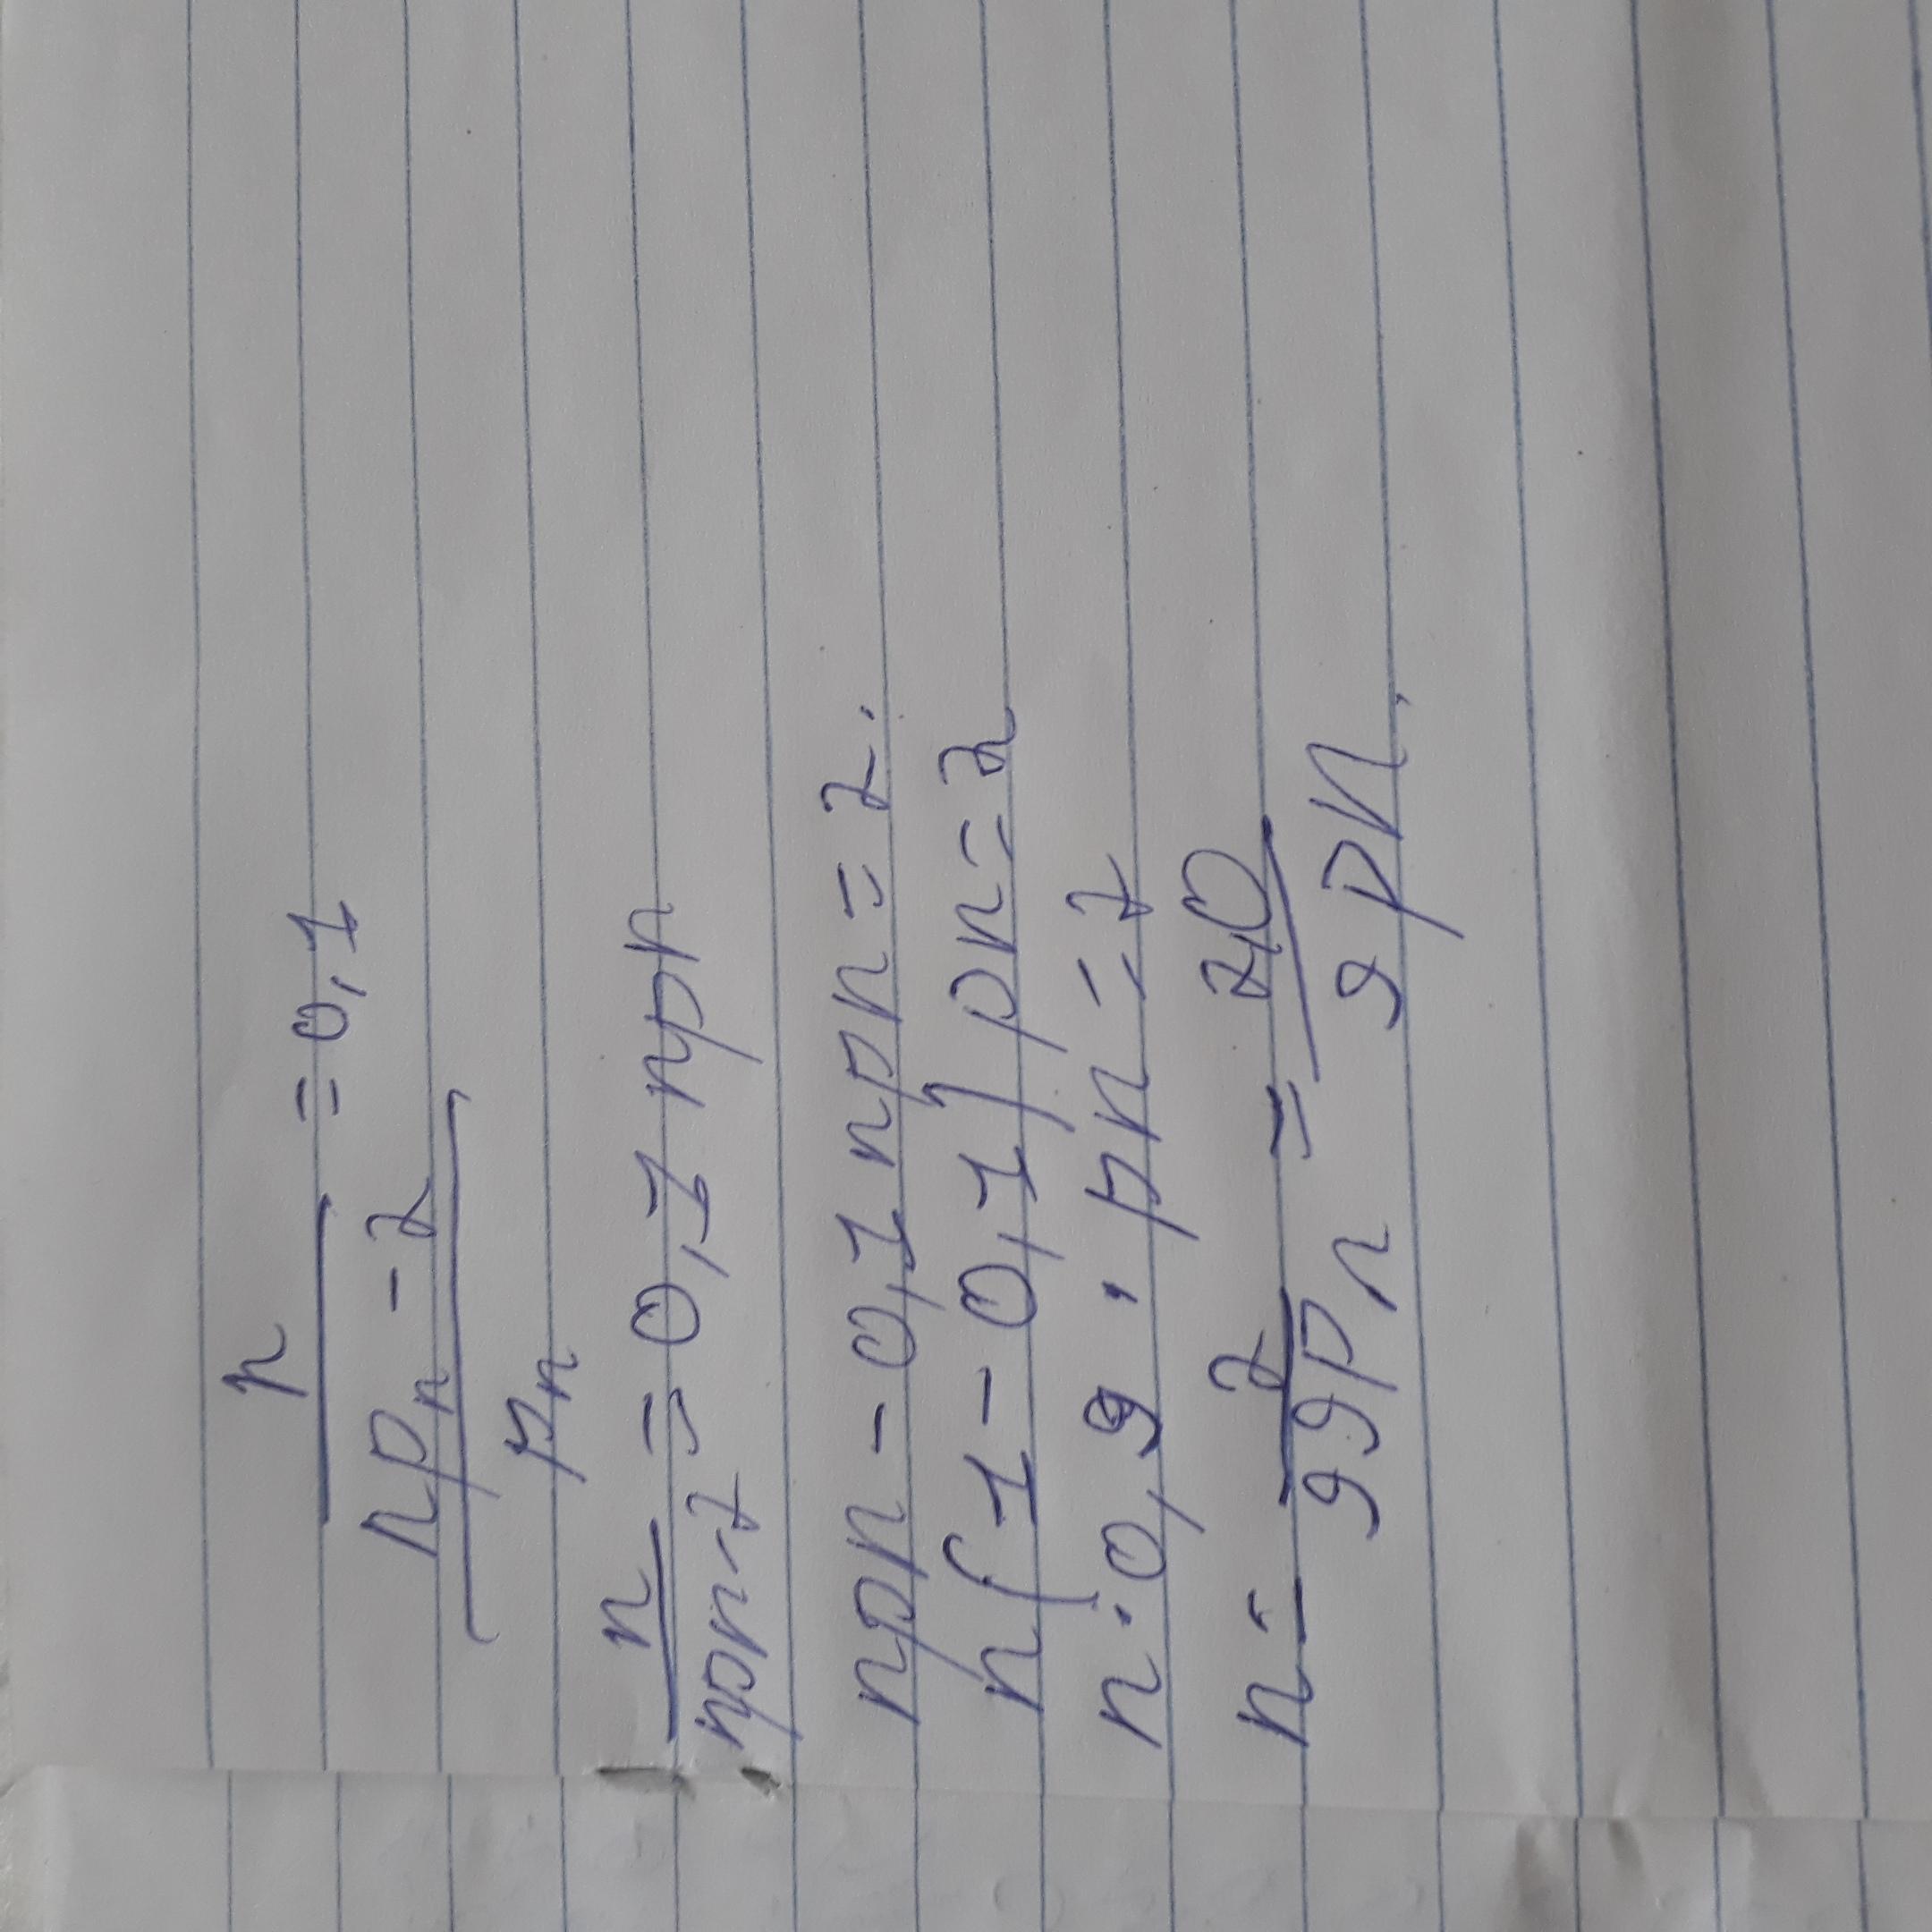 n
――― = 0,1
npn - 2
―――
pn
n/npn-2 = 0,1 npn
npn - 0,1 npn = 2.
n(1 - 0,1) pn = 2
n · 0,9 · pn = 2
n = 2/99pn = 20/9pn.